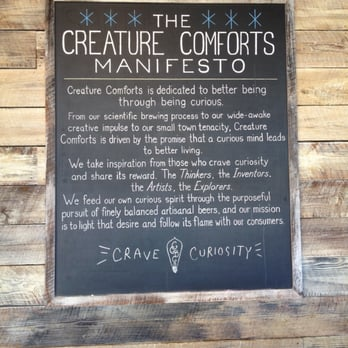 THE
CREATURE COMFORTS
MANIFESTO
Creature Comforts is dedicated to better being
through being curious.
From our scientific brewing process to our wide-awake
creative impulse to our small town tenacity, Creature
Comforts is driven by the promise that a curious mind leads
to better living.
We take inspiration from those who crave curiosity
and share its reward. The Thinkers, the Inventors,
the Artists, the Explorers.
We feed our own curious spirit through the purposeful
pursuit of finely balanced artisanal beers, and our mission
is to light that desire and follow its flame with our consumers.
CRAVE CURIOSITY